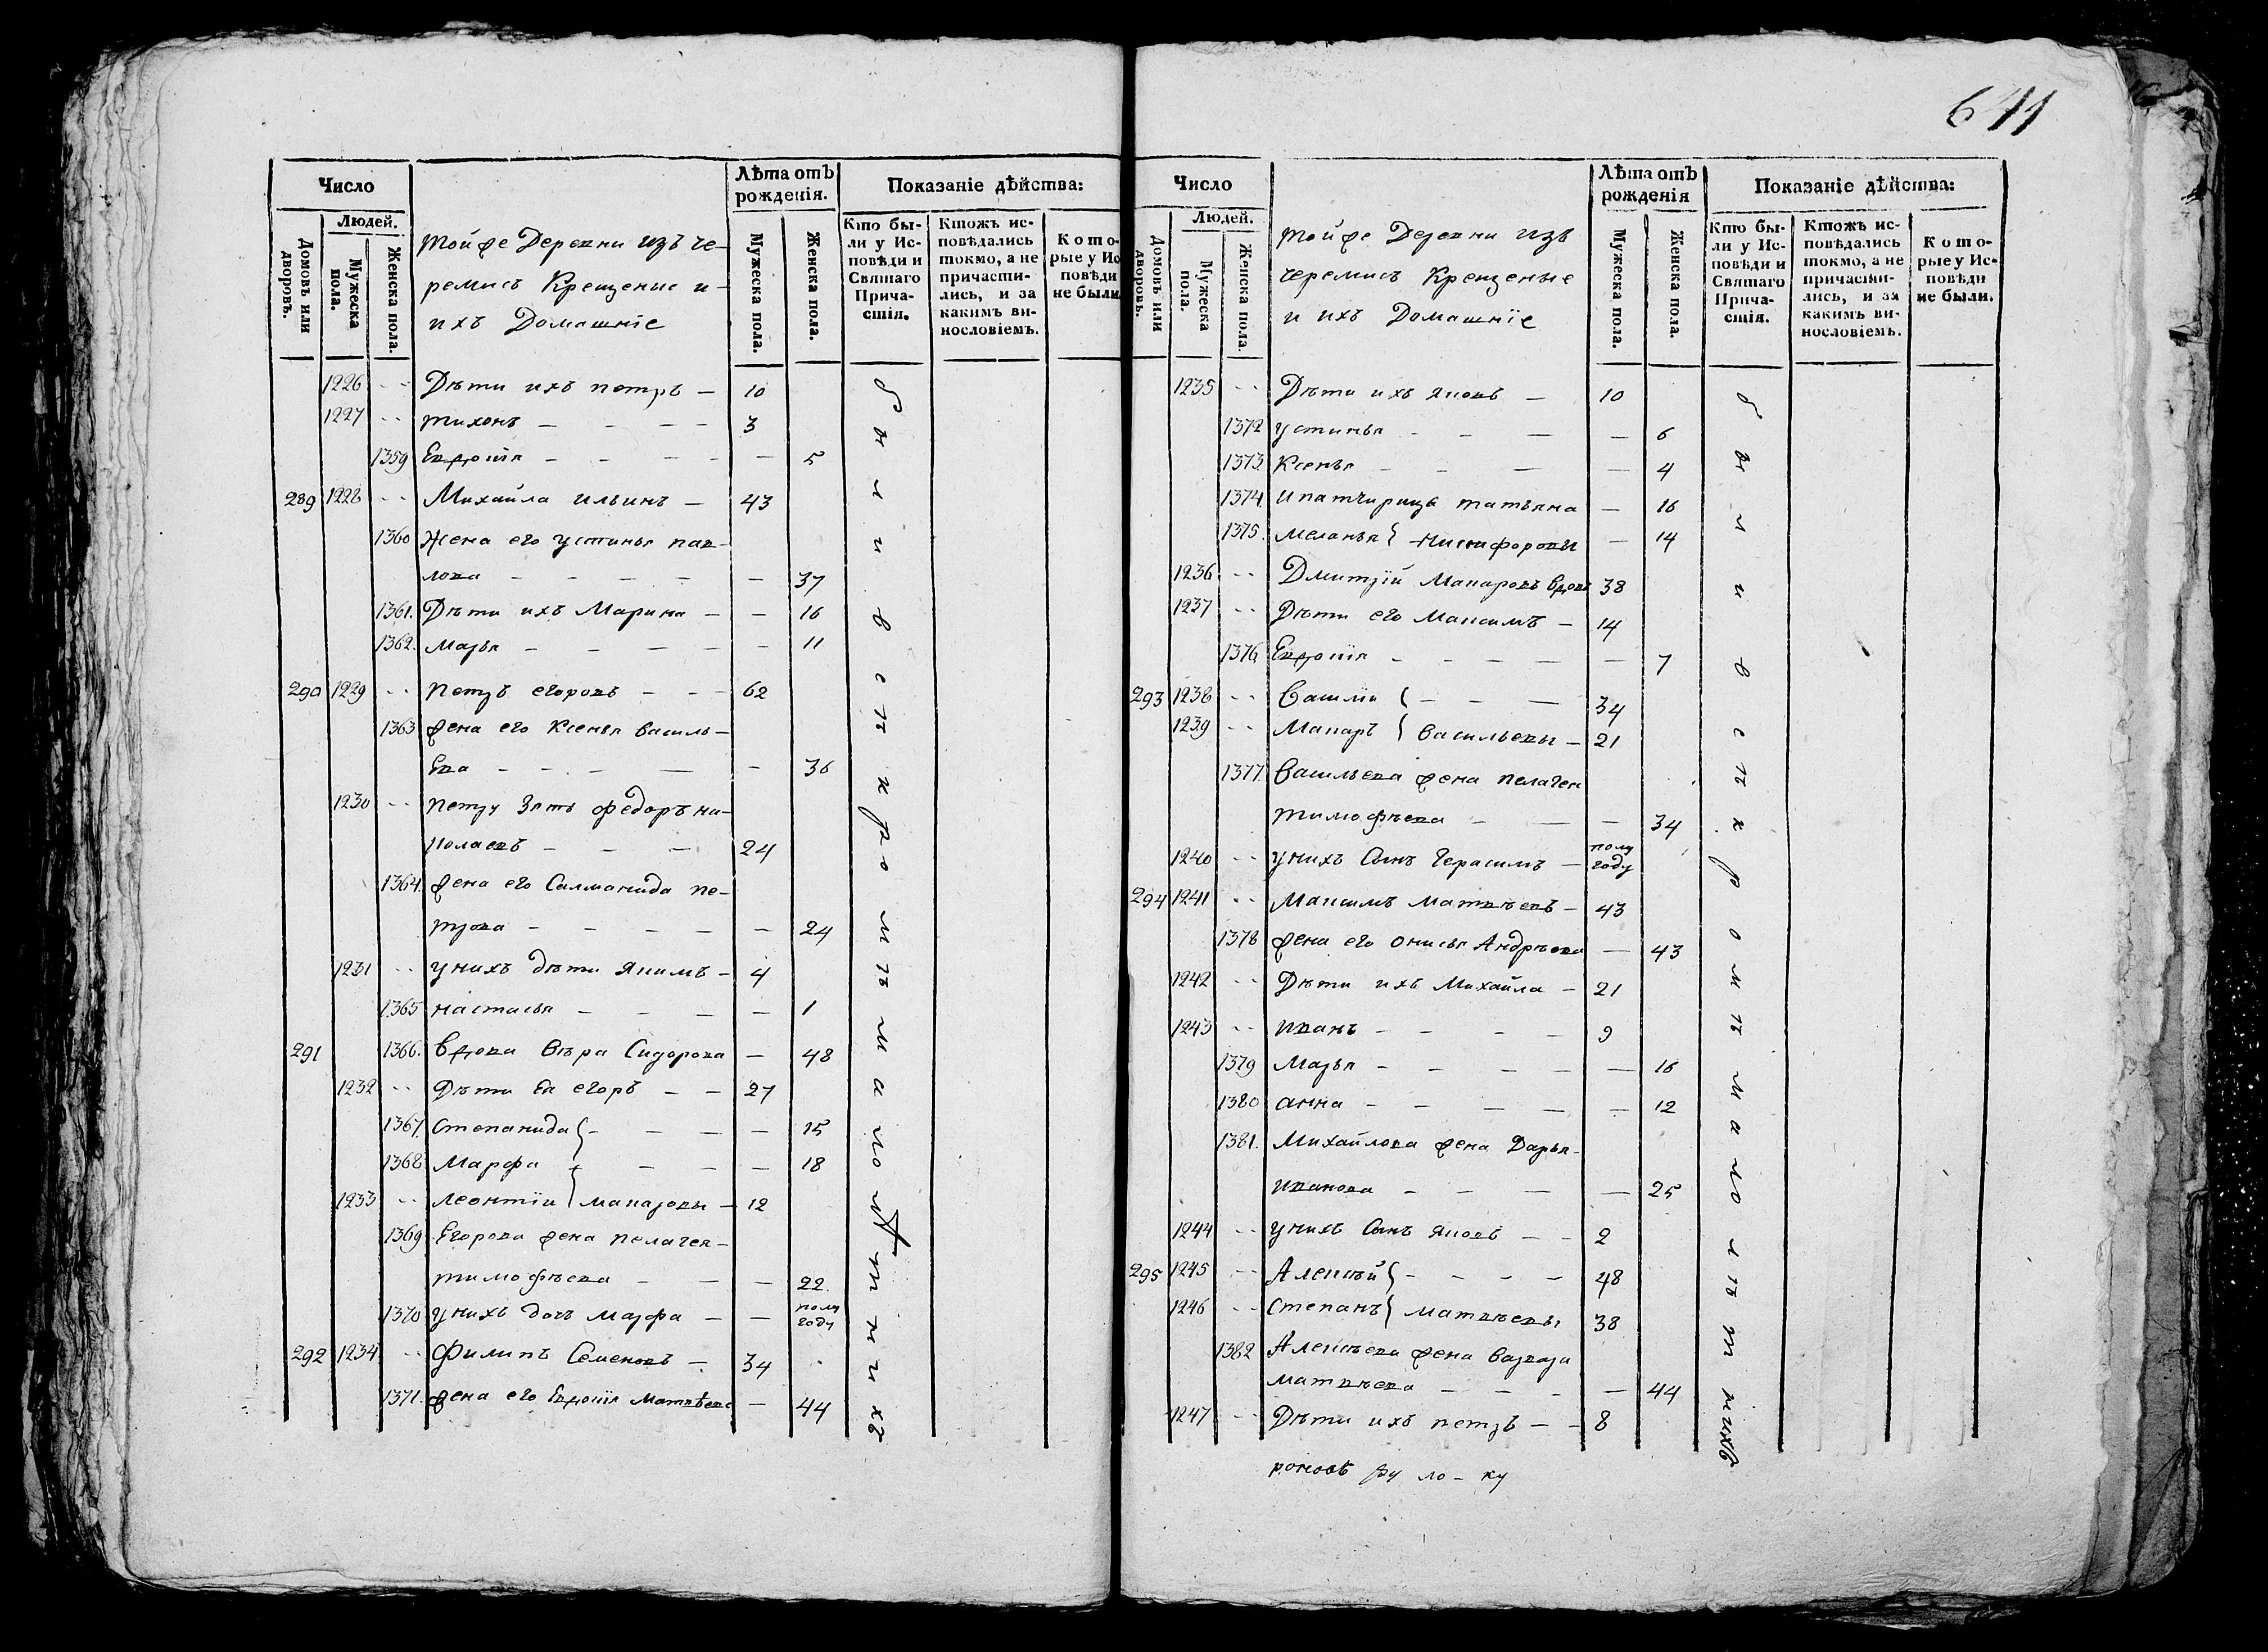 641
Число
Людей.
Домовъ или дворовъ.
Мужеска пола.
Женска пола.
тойже Деревни изъ че-
ремисъ Крещение и-
ихъ Домашніе
Лѣта отъ рожденія.
Мужеска пола.
Женска пола.
Показаніе дѣйства:
Кто бы-
ли у Ис-
повѣди и
Святаго
Прича-
стія.
Ктожъ ис-
повѣдались
токмо, а не
причасти-
лись, и за
какимъ ви-
нословіемъ.
Кото-
рые у Ис
повѣди
не были
1226 -- Дѣти ихъ петръ — 10
1227 -- тихонъ — — — — 3
1359 Евдокія — — — — — 5
289 1228 -- Михайла ильинъ — 43
1360 Жена его устинья пав-
лова — — — — — 37
1361. Дѣти ихъ Марина — — 16
1362. Марья — — — — — 11
290 1229 -- петръ егоровъ — — 62
1363 жена его Ксенья василь-
Ева — — — — — 36
1230 -- петру Зять федоръ ни-
колаевъ — — — 24
1364. жена его Саламанида пе-
трова — — — — — 24
1231 -- у нихъ дѣти Якимъ — 4
1365 настасья — — — — 1
291 1366. вдова вѣра Сидорова — 48
1232 -- Дѣти Ея егоръ — — 27
1367. Степанида — — — — 15
1368. Марфа — — — — 18
1233 -- леонтіи макаровы — 12
1369 Егорова жена пелагея —
тимофѣева — — — 22.
1370 у нихъ дочь марфа — — полу году
292 1234 -- Филипъ Семеновъ — 34
1371. жена его Евдокія Матвѣева — 44
были всѣ кромѣ малолѣтнихъ
Число
Людей.
Домовъ или дворовъ.
Мужеска пола.
Женска пола.
тойже Деревни изъ
черемисъ Крещеные
и ихъ Домашніе
Лѣта отъ рожденія
Мужеска пола.
Женска пола.
Показаніе дѣйства:
Кто бы-
ли у Ис-
повѣди и
Святаго
Прича-
стія.
Ктожъ ис-
повѣдались
токмо, а не
причасти-
лись, и за
какимъ ви-
нословіемъ.
Кото-
рые у Ис-
повѣди
не были.
1235 -- Дѣти ихъ яковъ — 10
1372 устинья — — — — 6
1373 Ксенья — — — — 4
1374. татьяна — 16
1375. меланья никифоровы — 14
1236 -- Дмитрій Макаровъ вдовъ 38
1237 -- Дѣти его Максимъ — 14
1376 Евдокія — — — — — 7
293 1238 -- Василіи — — — 34
1239 -- Макаръ васильевы — 21
1377. Васильева жена пелагея
тимофѣева — — — 34
1240 -- у нихъ Сынъ Герасимъ — полу году
294 1241 -- Максимъ матвѣевъ — 43
1378 жена его онисья Андрѣева — 43
1242 -- Дѣти ихъ Михайла — 21
1243 -- иванъ — — — — 9
1379 Марья — — — — — 16
1380 анна — — — — — 12
1381. Михайлова жена Дарья —
иванова — — — — 25
1244 -- у нихъ Сынъ яковъ — — 2
295 1245 -- Алексѣй — — — — 48
1246 -- Степанъ матвѣевы 38
1382 Алексѣева жена варвара
матвѣева — — — — 44
1247 -- Дѣти ихъ петръ — — 8
были всѣ кромѣ малолѣтнихъ